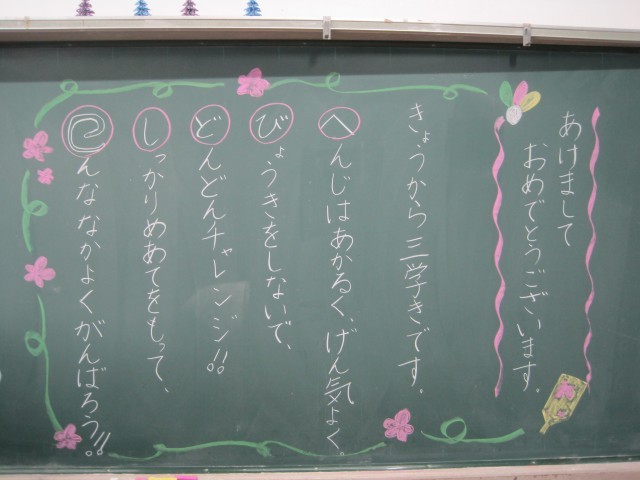 あけまして
おめでとうございます。
きょうから三学きです。
へんじはあかるく、げん気よく。
びょうきをしないで、
どんどんチャレンジ!!
しっかりめあてをもって、
巳んななかよくがんばろう!!